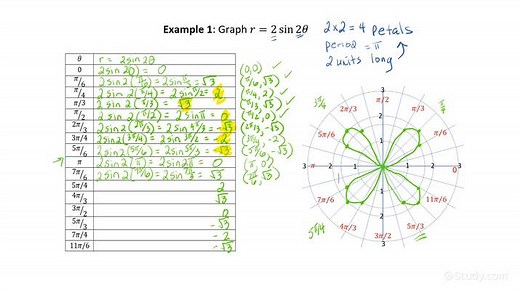 Example 1: Graph r = 2 sin 2θ
2×2 = 4 petals
period = π
2 units long
θ r = 2sin2θ
0 2sin 2(0) = 0
π/6 2sin2(π/6) = 2sin π/3 = √3
π/4 2sin 2(π/4) = 2sin π/2 = 2
π/3 2sin 2(π/3) = √3
π/2 2sin 2(π/2) = 2sin π = 0
2π/3 2sin2(2π/3) = 2sin 4π/3 = -√3
3π/4 2sin2(3π/4) = 2sin 3π/2 = -2
5π/6 2sin2(5π/6) = 2sin 5π/3 = -√3
π 2sin2(π) = 2sin2π = 0
7π/6 2sin2(7π/6) = 2sin 7π/3 = √3
5π/4 2
4π/3 √3
3π/2 0
5π/3 -√3
7π/4 -2
11π/6 -√3
(0,0)
(π/6, √3)
(π/4, 2)
(π/3, √3)
(π/2, 0)
(2π/3, -√3)
(3π/4, -2)
(5π/6, -√3)
(π, 0)
(7π/6, √3)
3π/4
π/4
π/2
2π/3
π/3
5π/6
π/6
π
0
7π/6
11π/6
5π/4
4π/3
5π/3
3π/2
3
3
3
3
Study.com